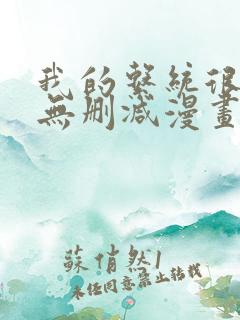 我的繫統很
無刪減漫畫
蘇俏然1
未经同意禁止转载